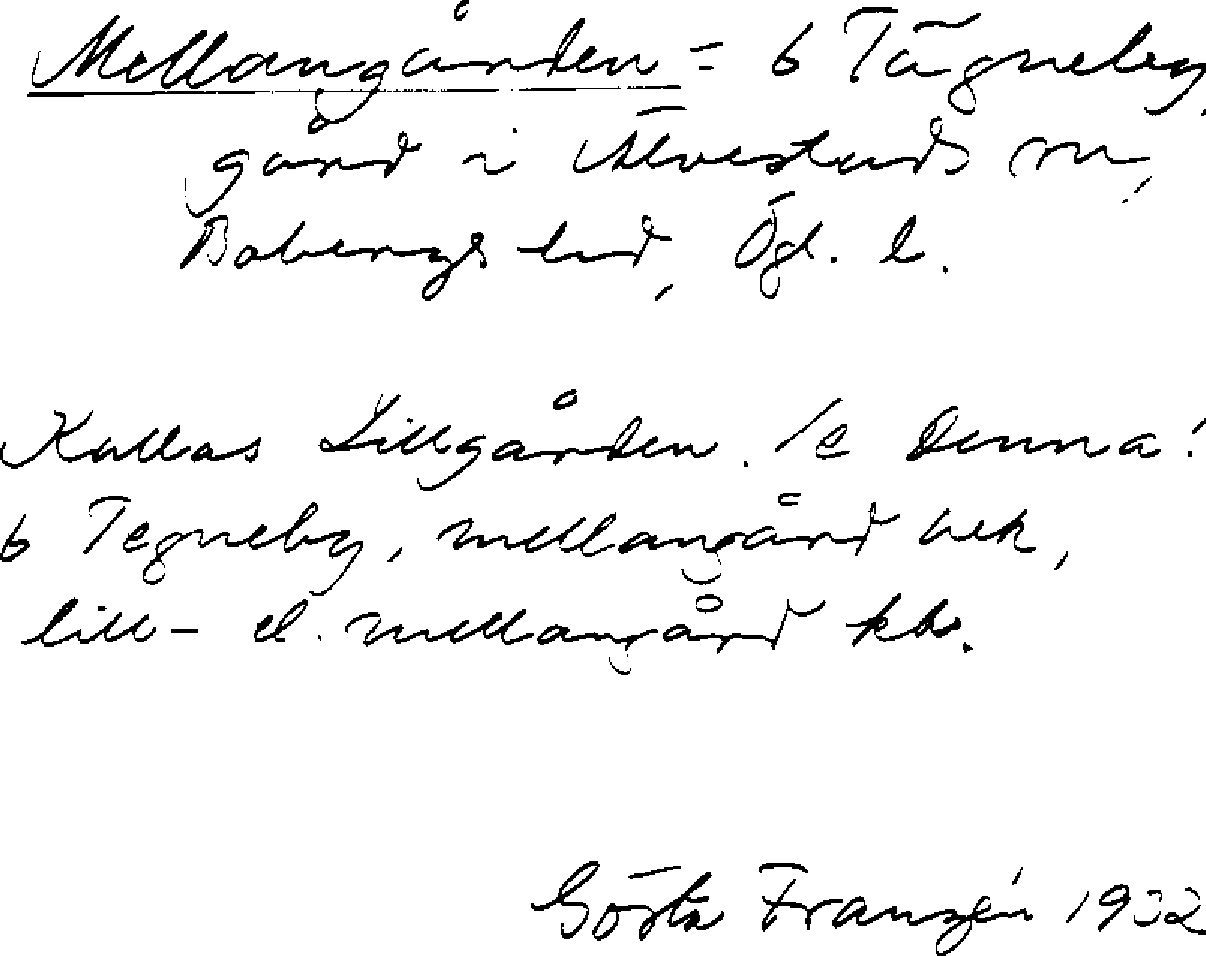 Mellangården = 6 Tägneby,
gård i Älvestads sn,
Bobergs hd, Ögl. l.
Kallas Lillgården. Se denna!
6 Tegneby, mellangård uek,
lill- el. mellangård kb.
Gösta Franzén 1932